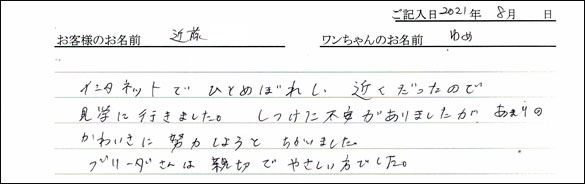 ご記入日 2021年 8月 日
お客様のお名前 近藤 ワンちゃんのお名前 ゆめ
インタネットで ひとめぼれし 近くだったので
見学に行きました。 しつけに不安がありましたが あまりの
かわいさに 努力しようと ちかいました。
ブリーダさんは 親切で やさしい方でした。